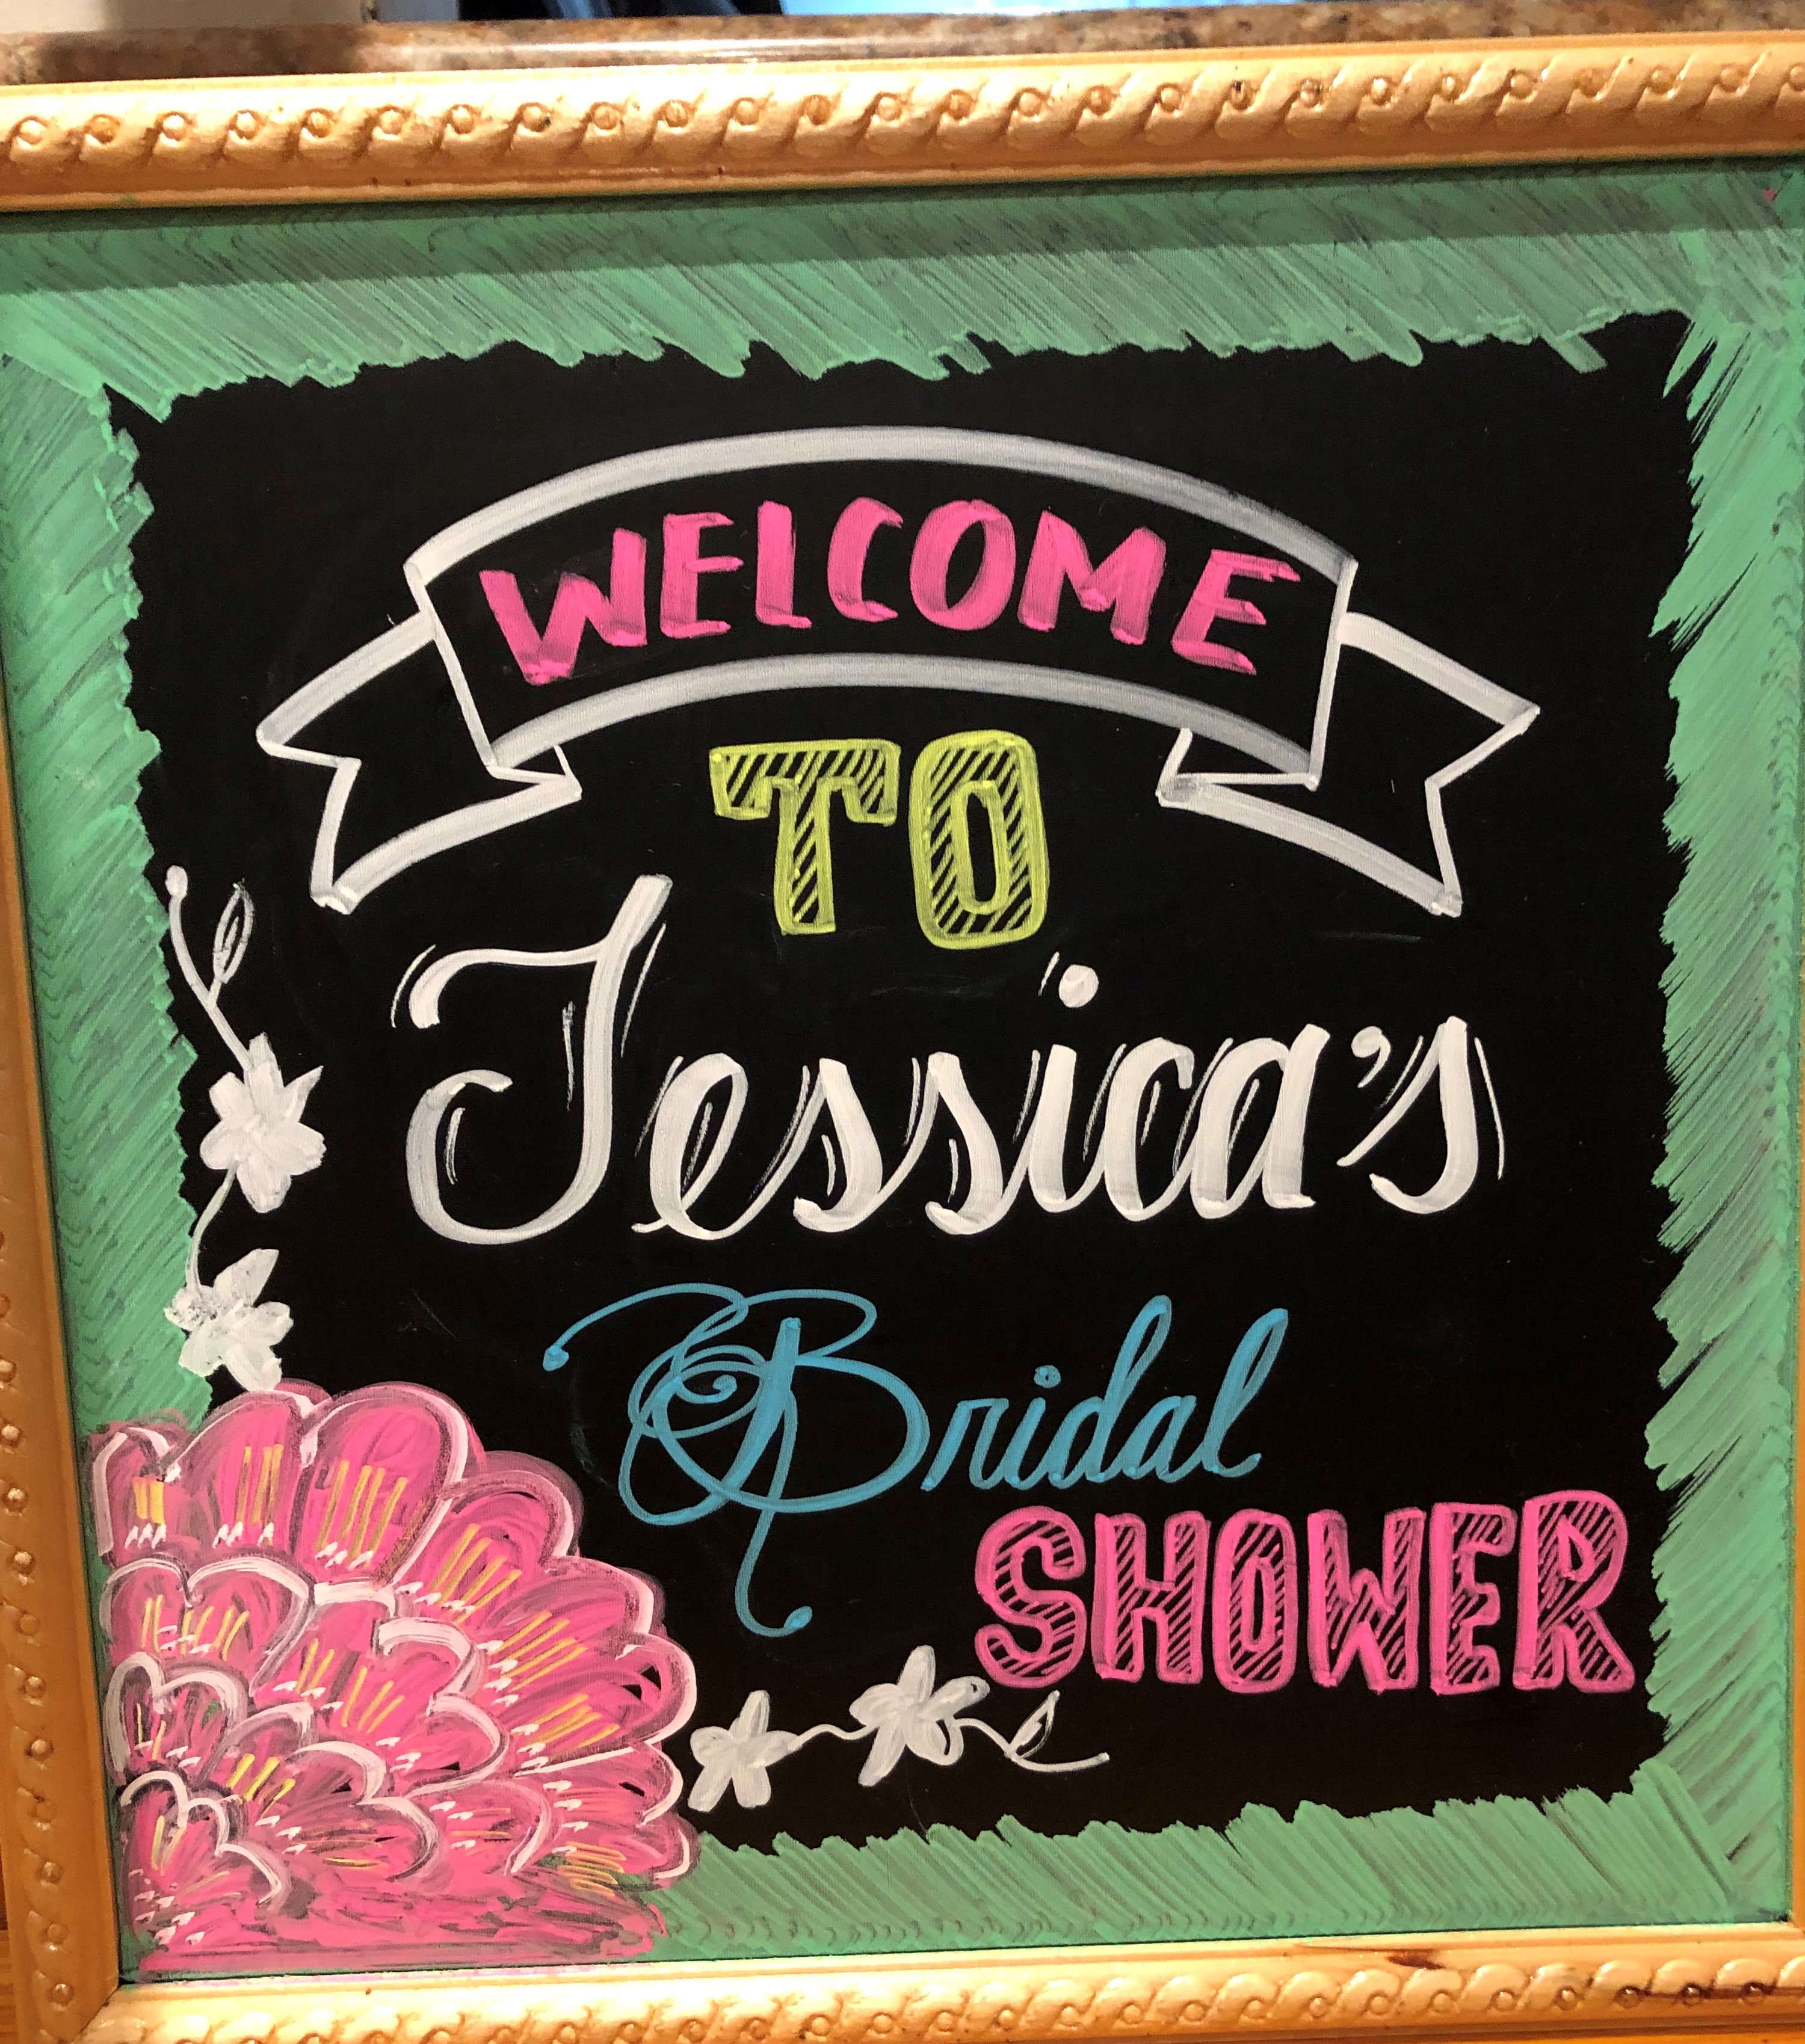 WELCOME
TO
Jessica's
Bridal
SHOWER